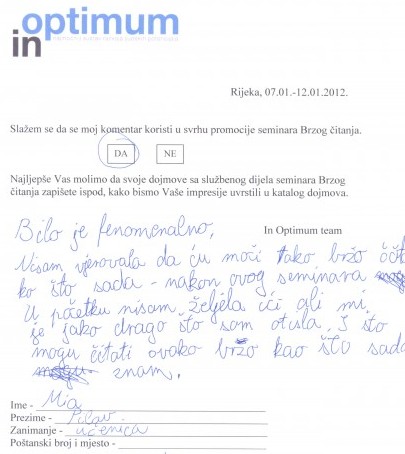 in optimum
Rijeka, 07.01.-12.01.2012.
Slažem se da se moj komentar koristi u svrhu promocije seminara Brzog čitanja.
DA NE
Najljepše Vas molimo da svoje dojmove sa službenog dijela seminara Brzog
čitanja zapišete ispod, kako bismo Vaše impresije uvrstili u katalog dojmova.
In Optimum team
Bilo je fenomenalno,
Nisam vjerovala da ću moći tako bržo čit
ko što sada - nakon ovog seminara
U početku nisam željela ići ali mi
je jako drago što sam otišla. I što
mogu čitati ovako bržo kao što sada
znam.
Ime - Mia
Prezime - Pilav
Zanimanje - učenica
Poštanski broj i mjesto -